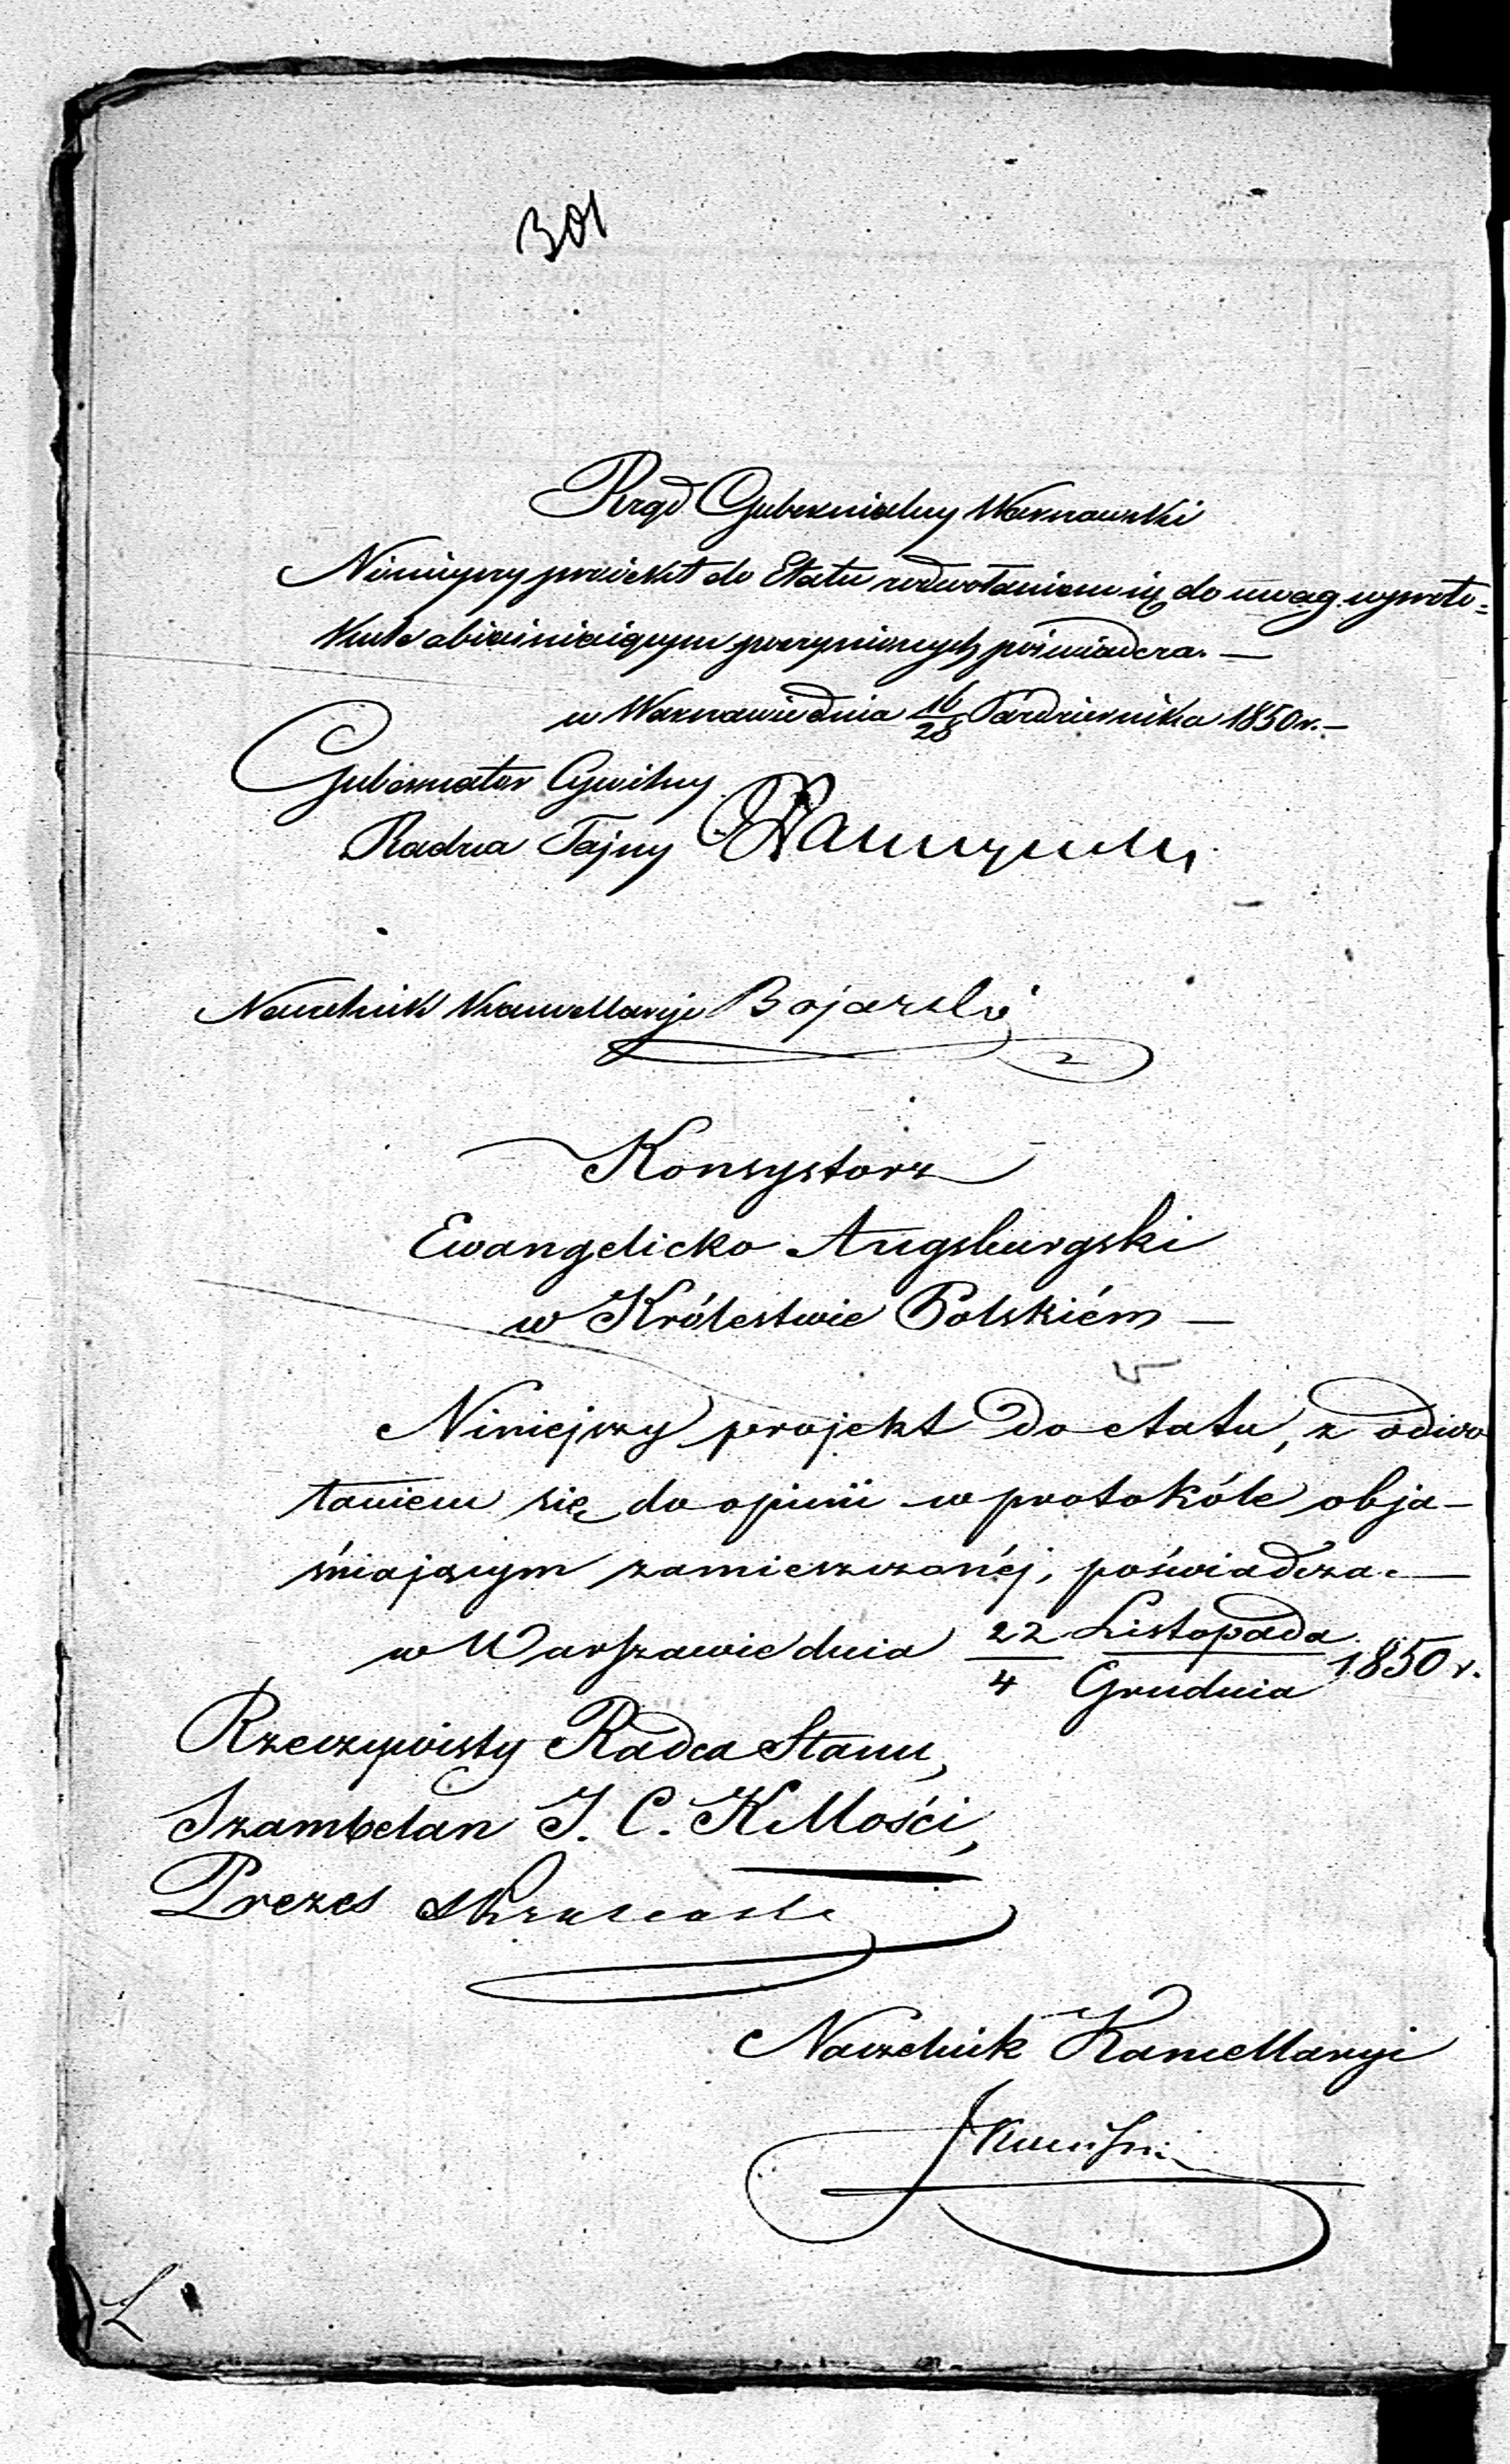 301
Rząd Gubernialny Warszawski
Ninieyszy proiekt do Etatu z odwołaniem się do uwag w proto=
kule obiaśniaiącym poczynionych poświadcza. —
w Warszawie dnia 16/28 Października 1850 r. —
Gubernator Cywilny
Radzca Tajny
Naczelnik Kancellaryi Bojarski
Konsystorz
Ewangelicko Augsburgski
w Królestwie Polskiém —
Niniejszy projekt do etatu, z odwo
łaniem się do opinii w protokóle obja-
śniającym zamieszczonéj, poświadcza. —
w Warszawie dnia 22 Listopada / 4 Grudnia 1850 r.
Rzeczywisty Radca Stanu,
Szambelan J. C. K Mości,
Prezes
Naczelnik Kancellaryi